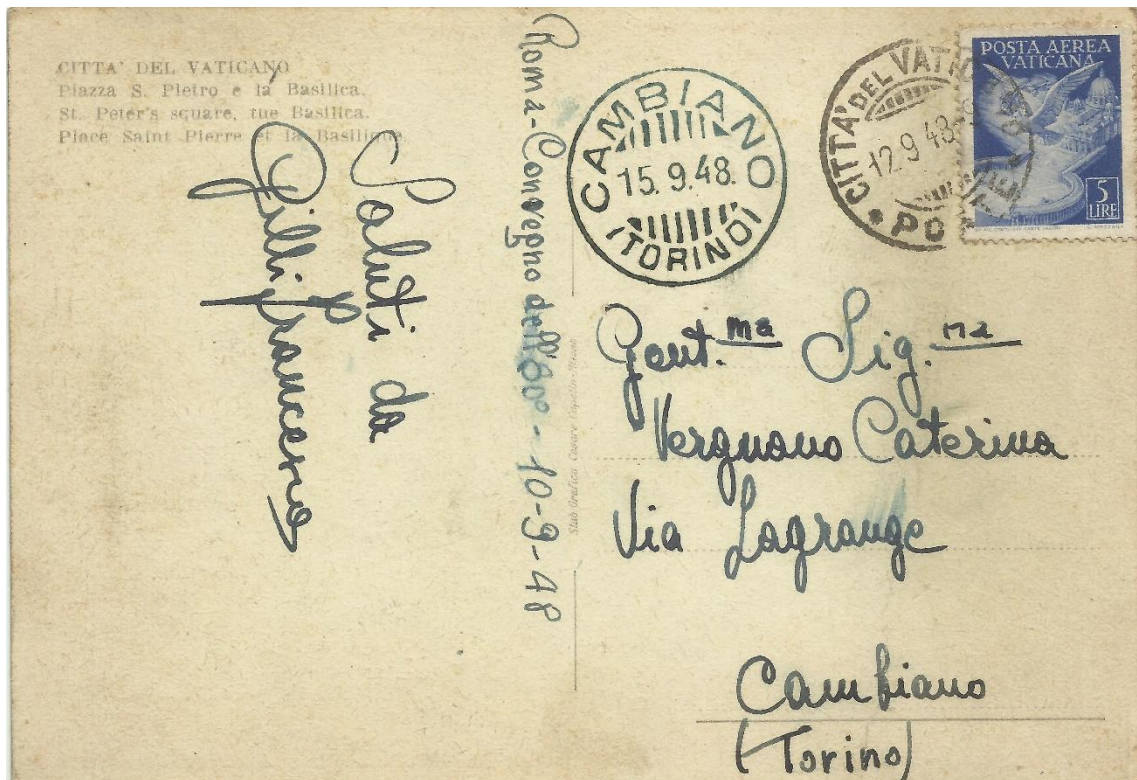 CITTA' DEL VATICANO
Piazza S. Pietro e la Basilica.
St. Peter's square, the Basilica.
Place Saint Pierre et la Basilique.
Saluti da
Gilli Francesco
Roma - Convegno dell'80º - 10-9-48
CAMBIANO
15.9.48.
(TORINO)
CITTA' DEL VATICANO
12.9.48
POSTE
POSTA AEREA
VATICANA
5
LIRE
Gent.ma Sig.na
Vergnano Caterina
Via Lagrange
Cambiano
(Torino)